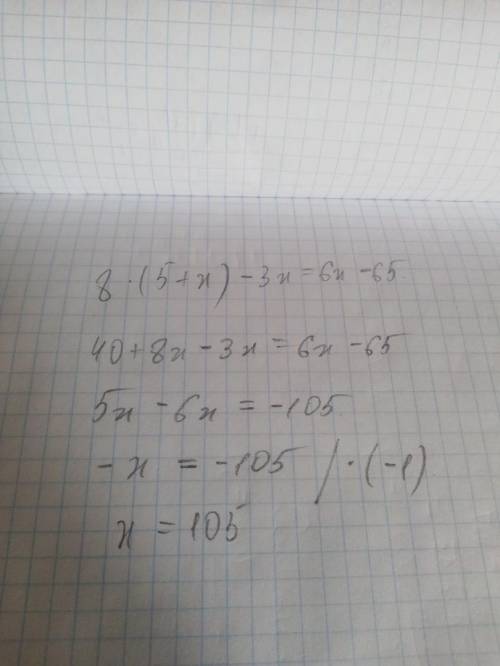 8 · (5 + x) - 3x = 6x - 65
40 + 8x - 3x = 6x - 65
5x - 6x = -105
- x = -105 / · (-1)
x = 105